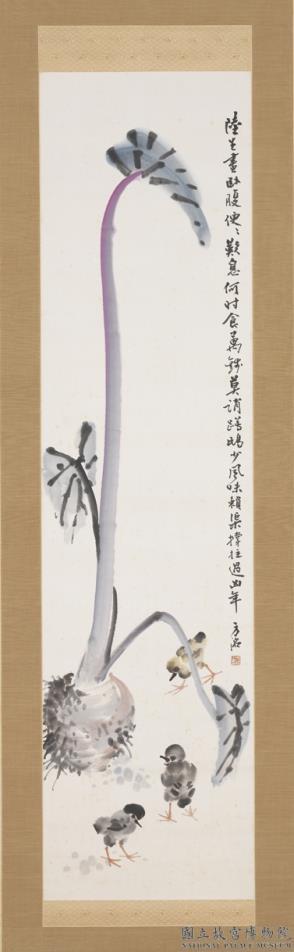 陸生晝臥腹便〻歎息何时食萬錢莫誚蹲鴟少風味賴渠撐拄過凶年 方
國立故宮博物院
NATIONAL PALACE MUSEUM